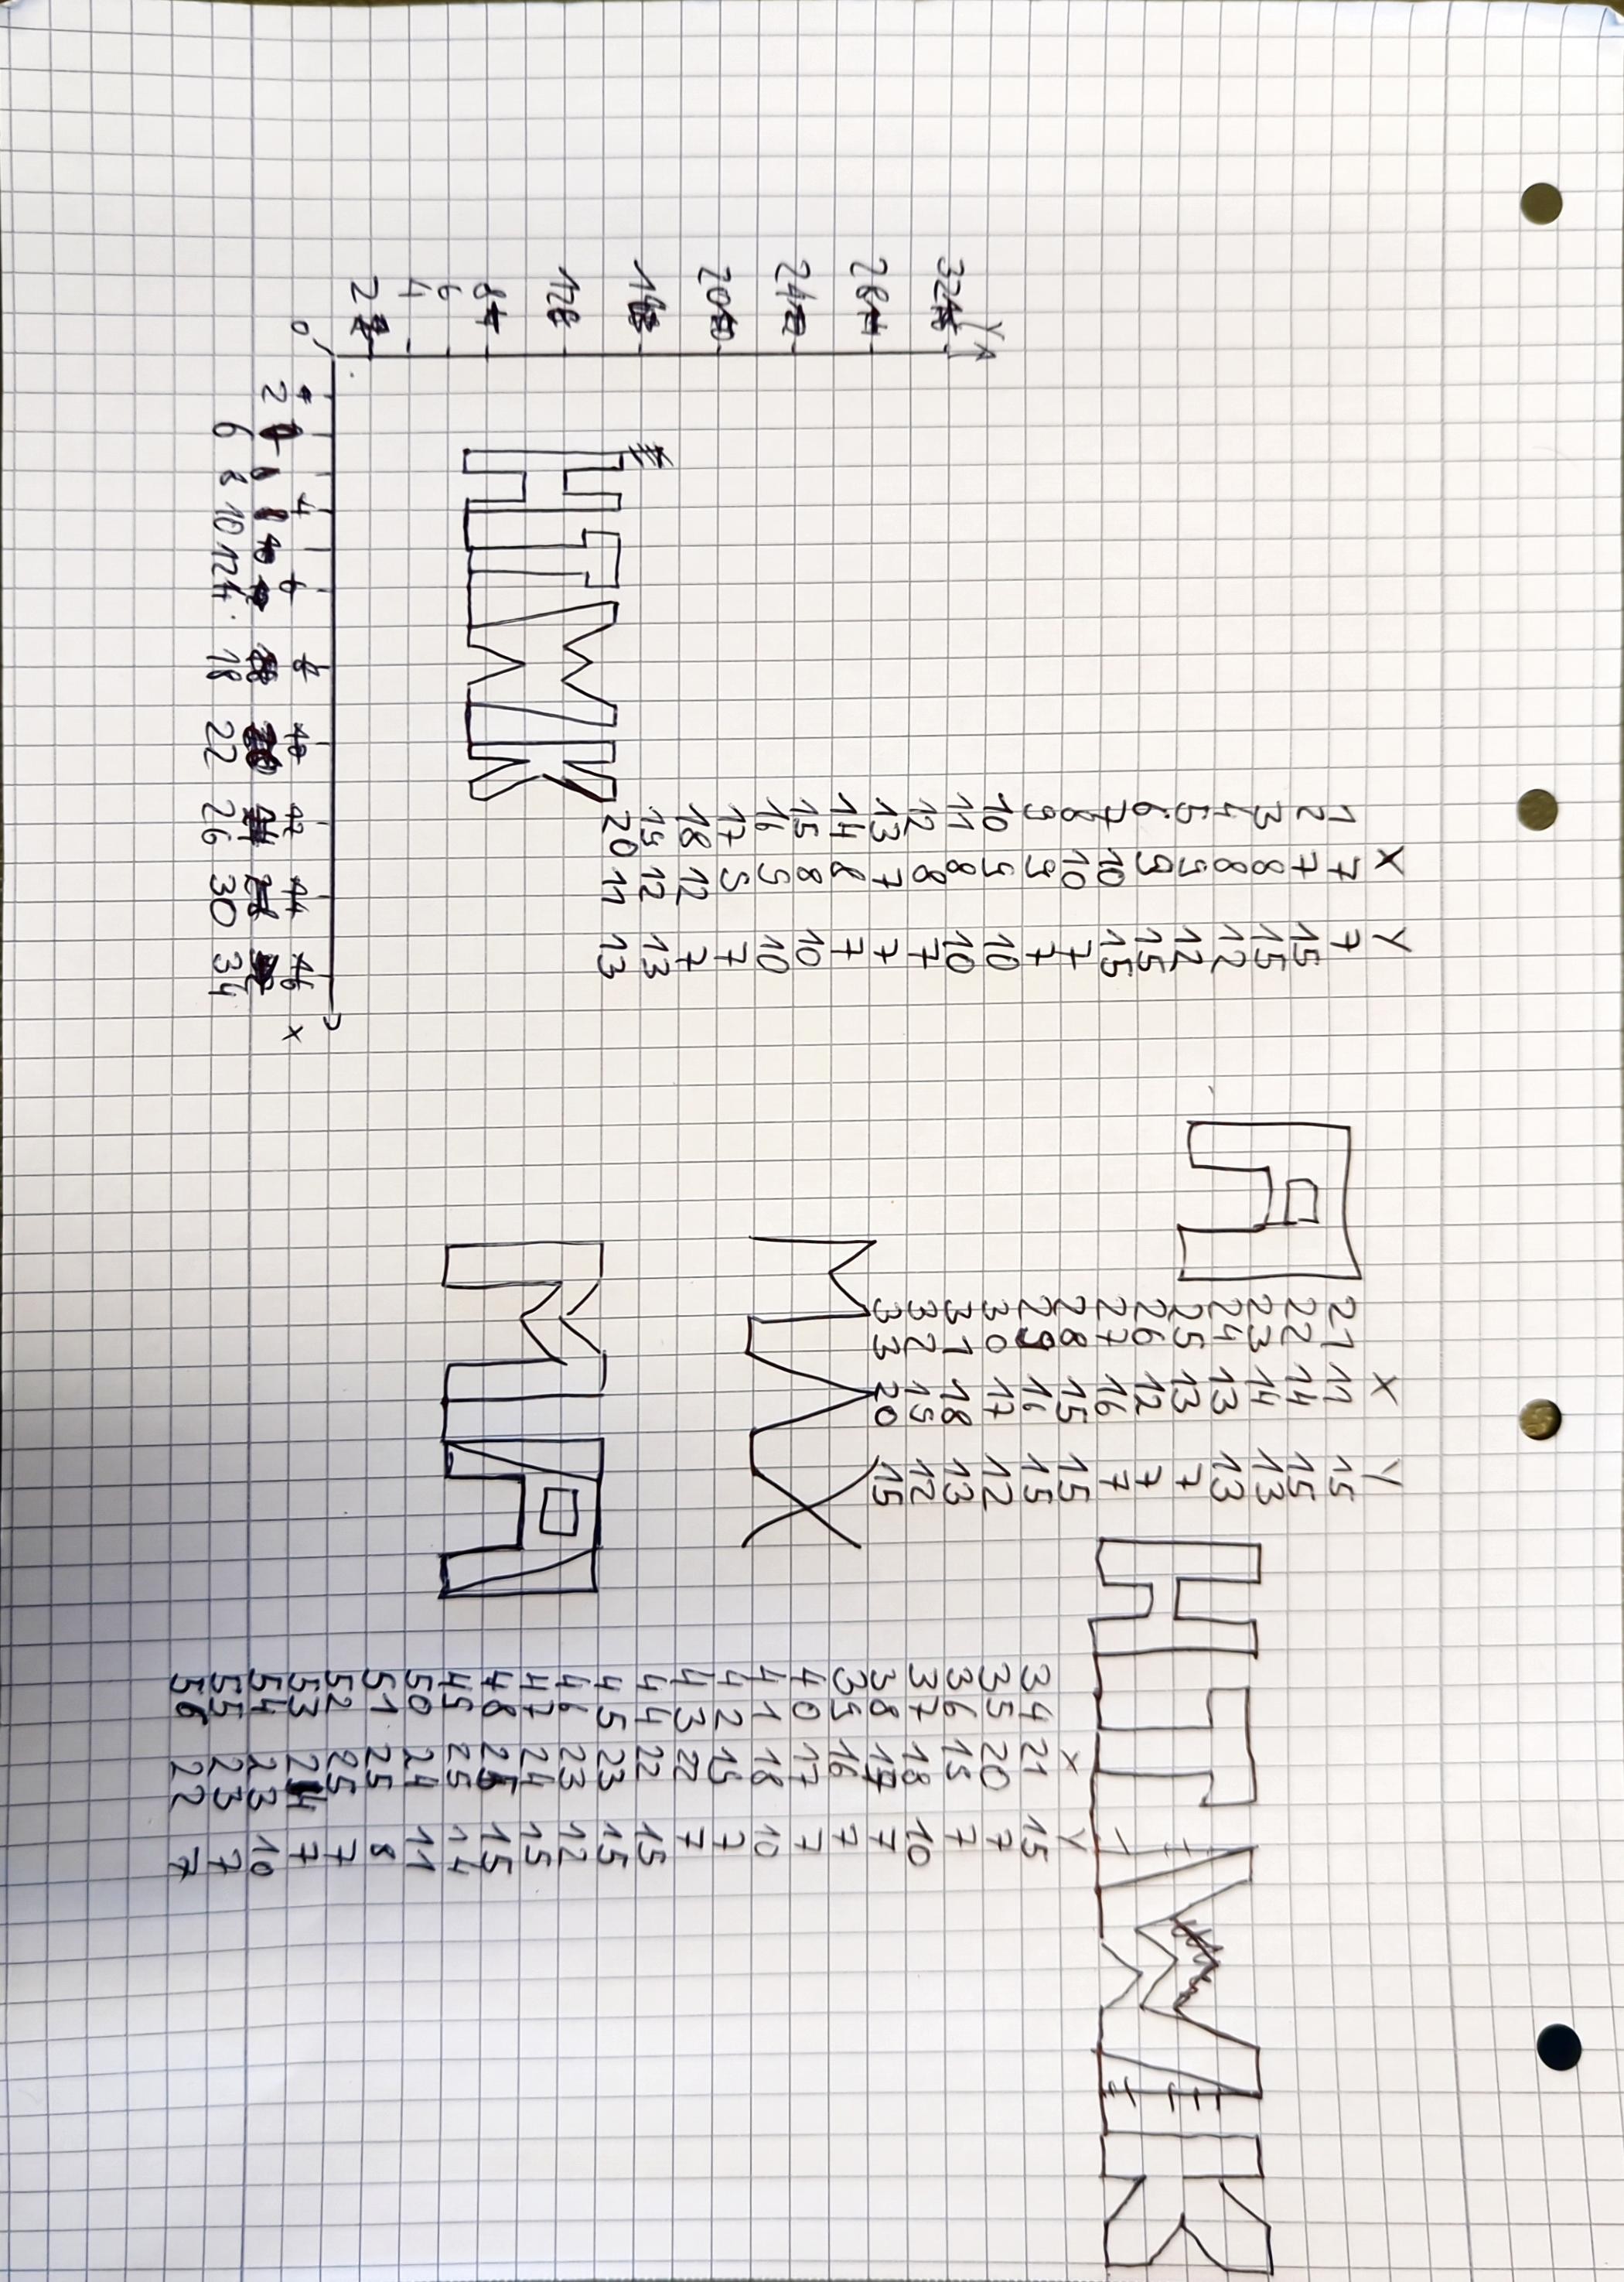 X Y
1 7 7
2 7 15
3 8 15
4 8 12
5 9 12
6 9 15
7 10 15
8 10 7
9 9 7
10 9 10
11 8 10
12 8 7
13 7 7
14 8 7
15 8 10
16 9 10
17 9 7
18 12 7
19 12 13
20 11 13
X Y
21 11 15
22 14 15
23 14 13
24 13 13
25 13 7
26 12 7
27 16 7
28 15 15
29 16 15
30 17 12
31 18 13
32 19 12
33 20 15
HTWK
X Y
34 21 15
35 20 7
36 19 7
37 18 10
38 17 7
39 16 7
40 17 7
41 18 10
42 19 7
43 22 7
44 22 15
45 23 15
46 23 12
47 24 15
48 25 15
49 25 14
50 24 11
51 25 8
52 25 7
53 24 7
54 23 10
55 23 7
56 22 7
Y
32
28
24
20
12
8
6
4
2
0
HTWK
MA
MAX
2 6 8 10 12 14 18 22 26 30 34 x